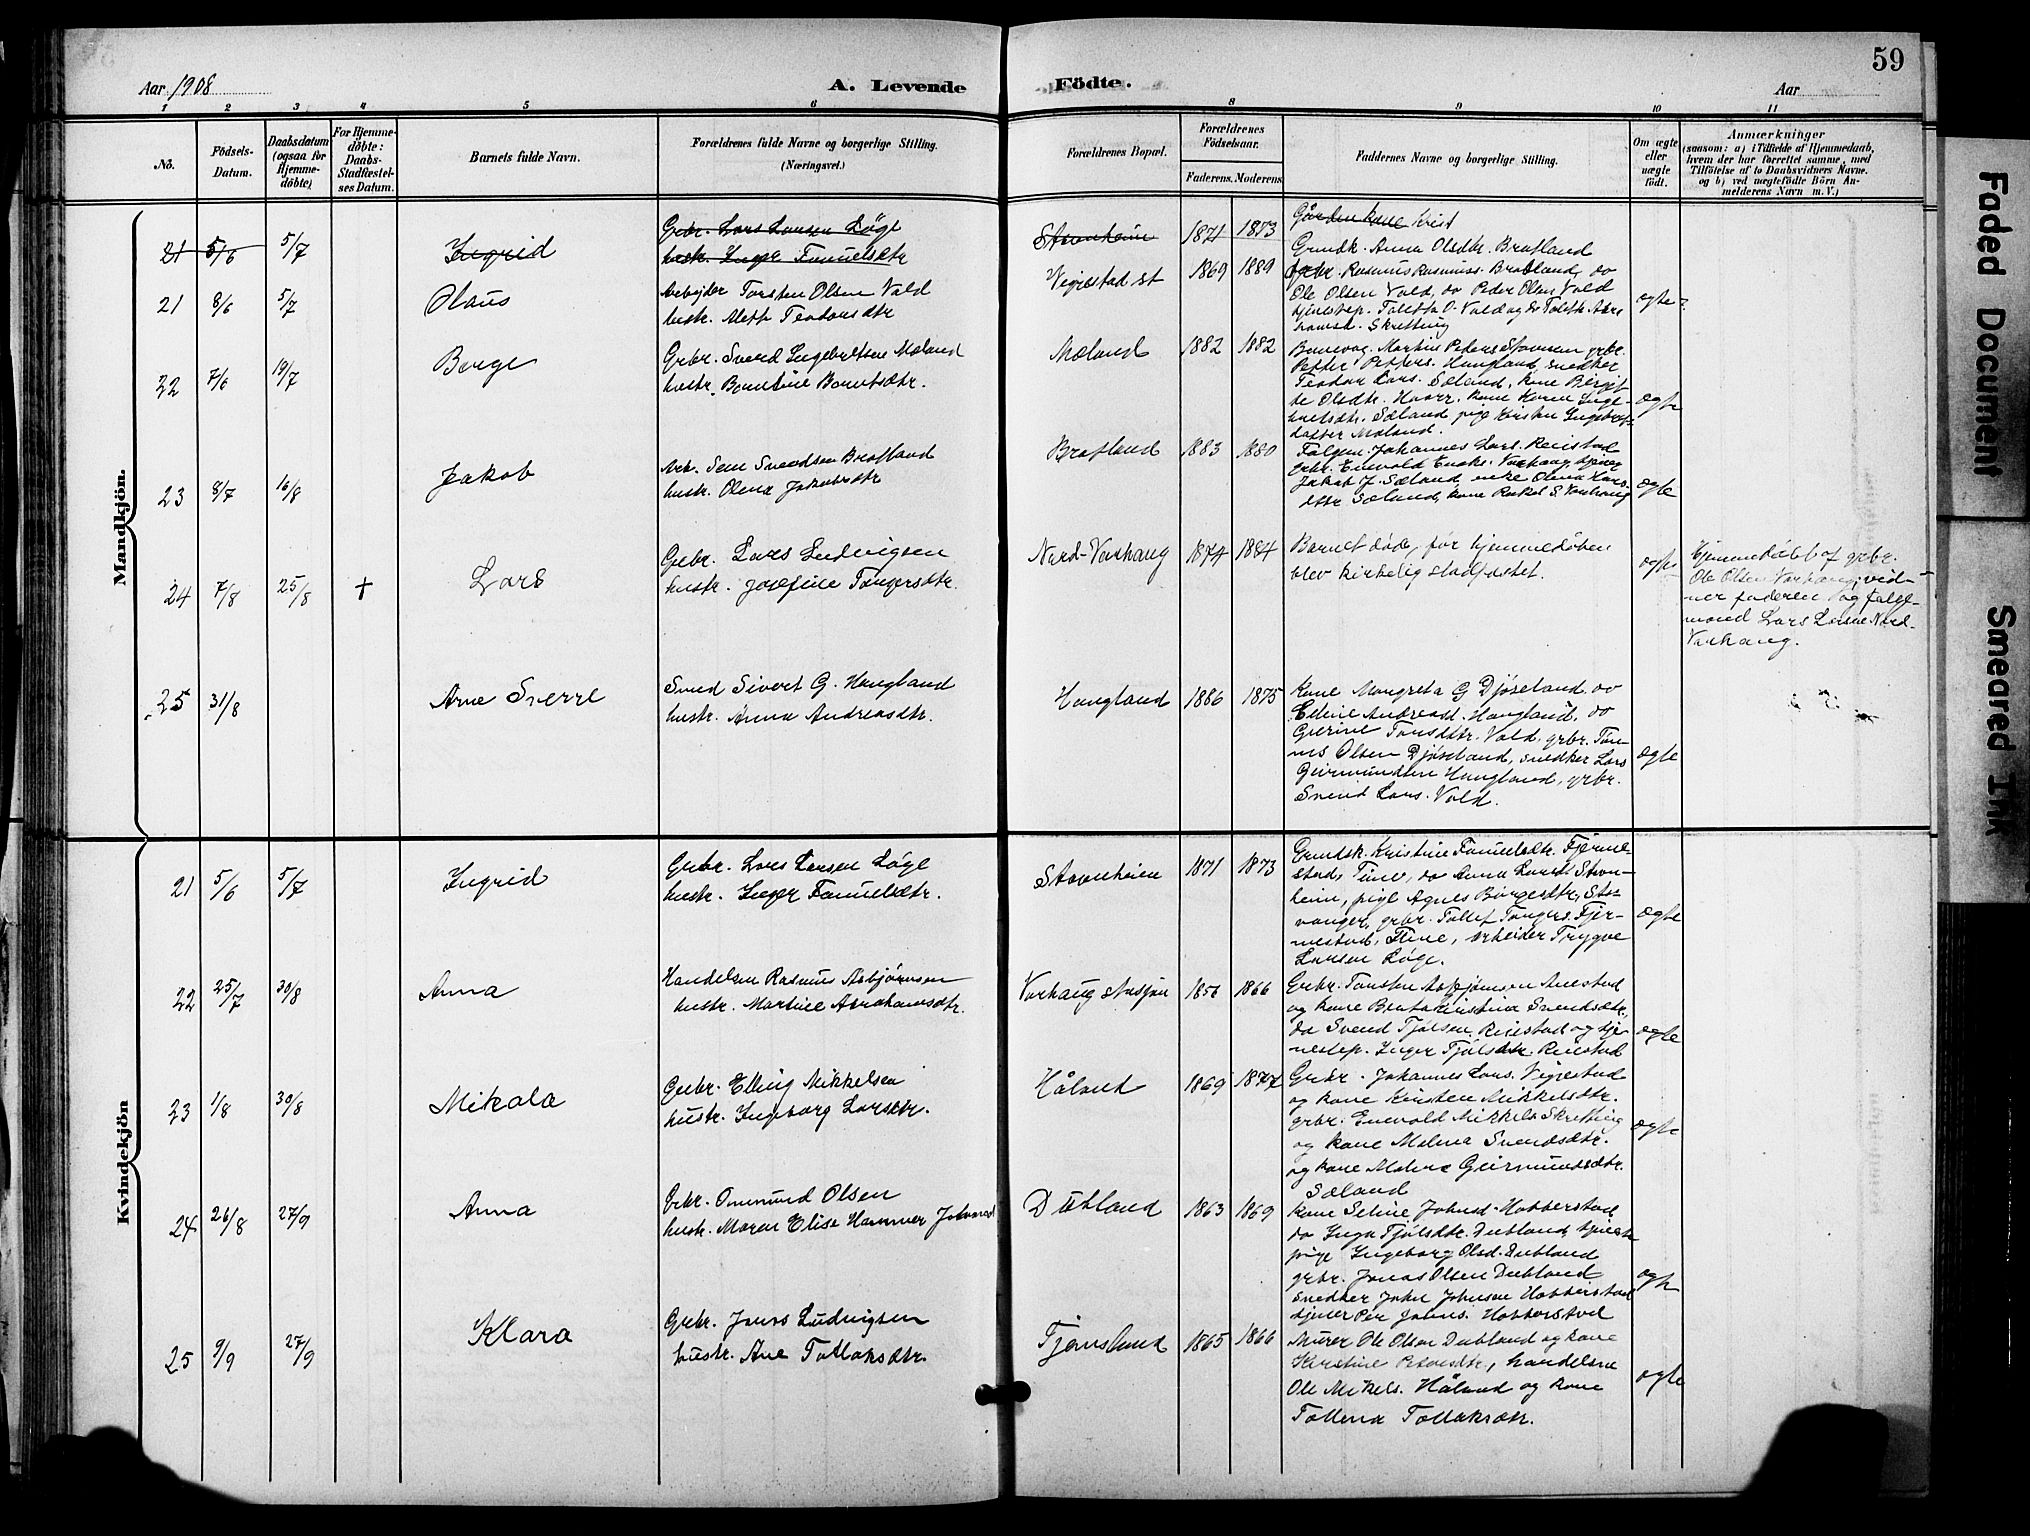 59
Aar 1908
A. Levende
Födte.
Aar
1 2 3 4 5 6 8 9 10 11
Nô.
Födsels-
Datum.
Daabsdatum
(ogsaa for
Hjemme-
döbte)
For Hjemme-
döbte:
Daabs-
Stadfæstel-
ses Datum.
Barnets fulde Navn.
Forældrenes fulde Navne og borgerlige Stilling.
(Næringsvei.)
Forældrenes Bopæl.
Forældrenes
Födselsaar.
Faderens. Moderens
Faddernes Navne og borgerlige Stilling.
Om ægte
eller
uægte
födt.
Anmærkninger
(saasom: a) i Tilfælde af Hjemmedaab,
hvem der har forrettet samme, med
Tilföielse af to Daabsvidners Navne.
og b) ved uægtefödte Börn An-
melderens Navn m. V.)
Mandkjön.
21 5/6 5/7 Ingrid
Grbr. Lars Larsen Løge
hustr. Inger Tanuelsdtr
Stavnheim 1871 1873
Gården kone Krist
21 8/6 5/7 Olaus
Arbejder Torsten Olsen Vold
hustr. Meth Teodorsdtr
Vigrestad st 1869 1889
Grundk. Anna Olsdtr. Bratland
grbr. Rasmus Rasmuss. Bratland, do
Ole Olsen Vold, do Peder Olsen Vold
Skretting
ægte
22 7/6 19/7 Børge
Grbr. Sverd Ingebretsen Mæland
hustr. Berntine Berntsdtr.
Mæland 1882 1882
Banevog. Martin Peders Stavnsen grbr.
Petter Petters. Haugland, snedker
Teodor Lars. Sæland, kone Birgit-
te Olsdtr. Hvarr. kone Karen Inge-
bretsdtr. Sæland, pige Kirsten Ingebrets-
datter Mæland.
ægte
23 8/7 16/8 Jakob
Arb. Sem Svendsen Bratland
hustr. Olena Jakobsdtr
Bratland 1883 1880
Følgem. Johannes Lars. Reistad
grbr. Enevold Enoks. Varhaug, tjener
Jakob J. Sæland, enke Olena Hans-
dttr Sæland, kone Rakel S. Varhaug
ægte
24 7/8 25/8 + Lars
Grbr. Lars Ludvigsen
hustr. Josefine Tangersdtr.
Nord-Varhaug 1874 1884
Barnet døde, før hjemmedåben
blev kirkelig stadfæstet.
ægte
Hjemmedøbt af grbr.
Ole Olsen Varhaug, vid-
ner faderen og følge-
mand Lars Larsen Nord-
Varhaug.
25 31/8 Arne Sverre
Smed Sivert G. Haugland
hustr. Anna Andreasdtr.
Haugland 1886 1875
Kone Margreta G Djøseland, do
Elline Andreasd. Haugland, do
Gurine Tonsdtr. Vold, grbr. Tøn-
nes Olsen Djøseland, snedker Lars
Geirmundsen Haugland, grbr.
Svend Lars. Vold.
ægte
Kvindekjön
21 5/6 5/7 Ingrid
Grbr. Lars Larsen Løge
hustr. Inger Tanuelsdtr.
Stavnheim 1871 1873
Grundsk. Kristine Tanuelsdtr. Fjerme-
stad, Time, do Anna Larsd. Stavn-
heim, pige Agnes Børgesdtr, Sta-
vanger, grbr. Tollef Tangers. Fjer-
mestad, Time, arbeider Trygve
Larsen Løge.
ægte
22 25/7 30/8 Anna
Handelsm Rasmus Asbjørnsen
hustr. Martine Abrahamsdtr.
Varhaug stasjon 1856 1866
Grbr. Torsten Asbjørnsen Auestad
og kone Berta Kristina Svendsdtr,
do Svend Tjølsen Reiestad og tje-
nestep. Inger Tjølsdtr. Reiestad
ægte
23 1/8 30/8 Mikala
Grbr. Elling Mikkelsen
hustr. Ingeborg Larsdtr.
Håland 1869 1877
Grbr. Johannes Lars. Vigrestad
og kone Kirsten Mikkelsdtr.
grbr. Enevold Mikkels. Skretting
og kone Malena Svendsdtr.
og kone Malene Geirmundsdtr.
Sæland
ægte
24 26/8 27/9 Anna
Grbr. Ommund Olsen
hustr. Maren Elise Hammer Johnsd
Dubland 1863 1869
kone Seline Johnsd. Hobberstad
do Inga Tjølsdtr. Dubland, tjeneste
pige Ingeborg Olsd. Dubland
grbr. Jonas Olsen Dubland
snedker John Johnsen Hobberstad
tjener Per Johns. Hobberstad
ægte
25 9/9 27/9 Klara
Grbr. Jonas Ludvigsen
hustr. Ane Tollaksdtr.
Tjemsland 1865 1866
Murer Ole Olsen Dubland og kone
Kirstine Pedersdtr., handelsm
Ole Mikels. Håland og kone
Tollena Tollaksdtr.
ægte
Faded Document
Smeared Ink